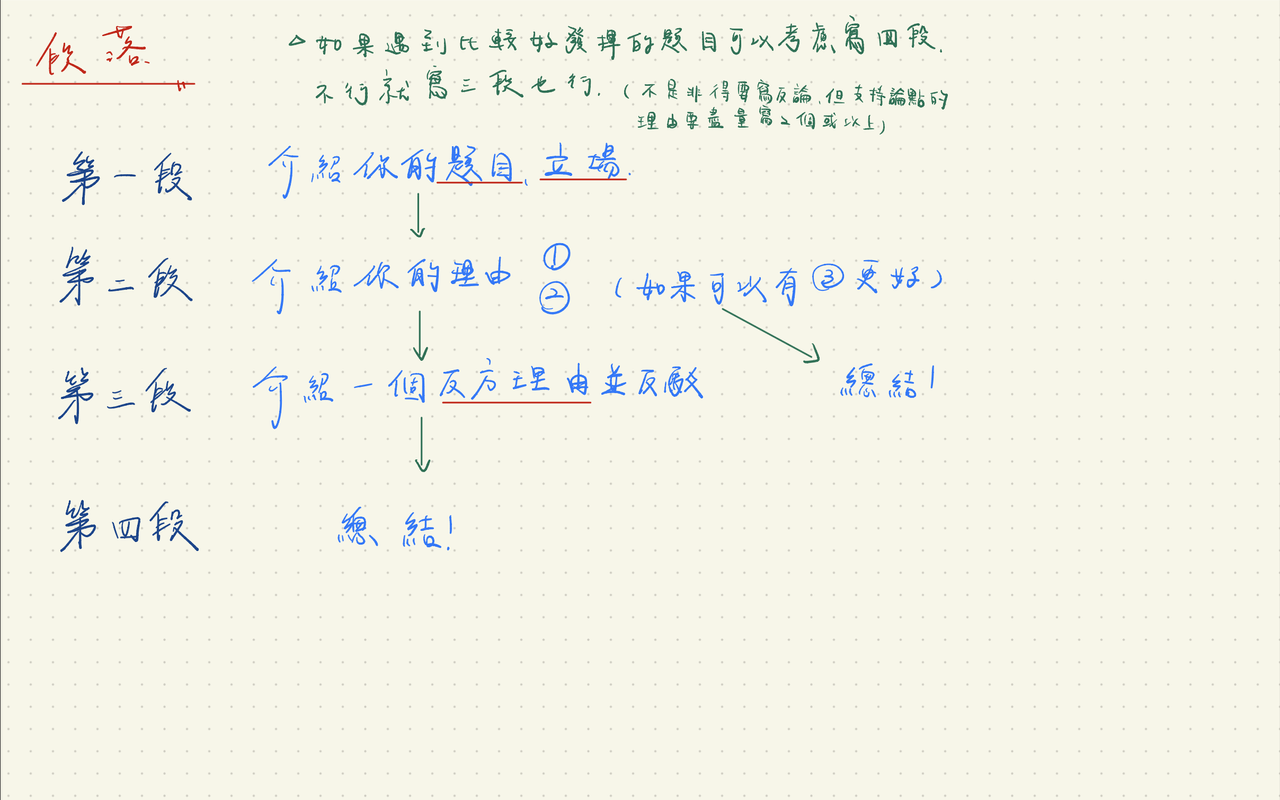 段落
△如果遇到比較好發揮的題目可以考慮寫四段.
不行就寫三段也行.(不是非得要寫反論,但支持論點的
理由要盡量寫2個或以上)
第一段 介紹你的題目、立場.
第二段 介紹你的理由 ① ② (如果可以有③更好)
第三段 介紹一個反方理由並反駁 總結!
第四段 總結!